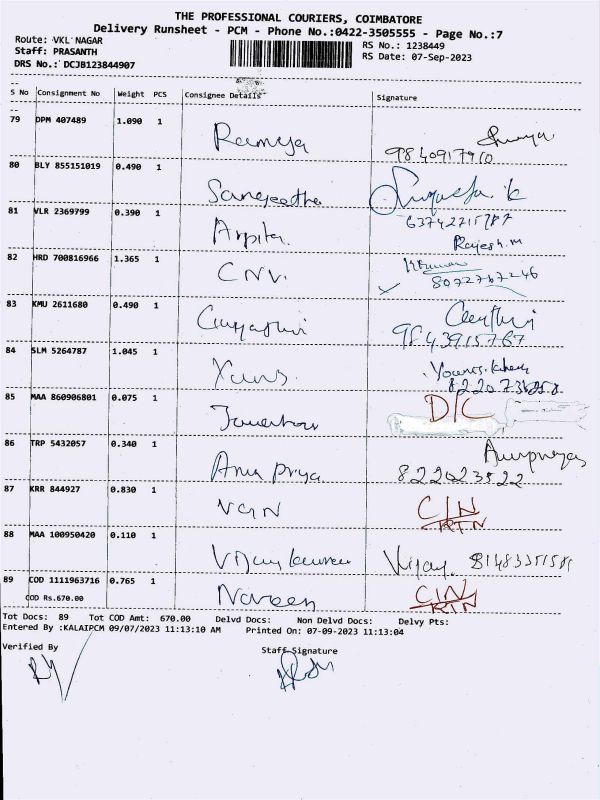 THE PROFESSIONAL COURIERS, COIMBATORE
Delivery Runsheet - PCM - Phone No.:0422-3505555 - Page No.:7
Route: VKL NAGAR RS No.: 1238449
Staff: PRASANTH RS Date: 07-Sep-2023
DRS No.: DCJB123844907
S No Consignment No Weight PCS Consignee Details Signature
79 DPM 407489 1.090 1 Ramya
9840917910
80 BLY 855151019 0.490 1 Sangeetha
81 VLR 2369799 0.390 1 Arpita
Rajesh.m
82 HRD 700816966 1.365 1 CNV.
8072767246
83 KMU 2611680 0.490 1 Gayathri
9843915767
84 SLM 5264787 1.045 1
85 MAA 860906801 0.075 1 D/C
86 TRP 5432057 0.340 1 Anu priya
822023522
87 KRR 844927 0.830 1 C/N
RTN
88 MAA 100950420 0.110 1 Vijay kumar Vijay.
89 COD 1111963716 0.765 1 Naveen C/N
COD Rs.670.00 RTN
Tot Docs: 89 Tot COD Amt: 670.00 Delvd Docs: Non Delvd Docs: Delvy Pts:
Entered By :KALAIPCM 09/07/2023 11:13:10 AM Printed On: 07-09-2023 11:13:04
Verified By Staff Signature